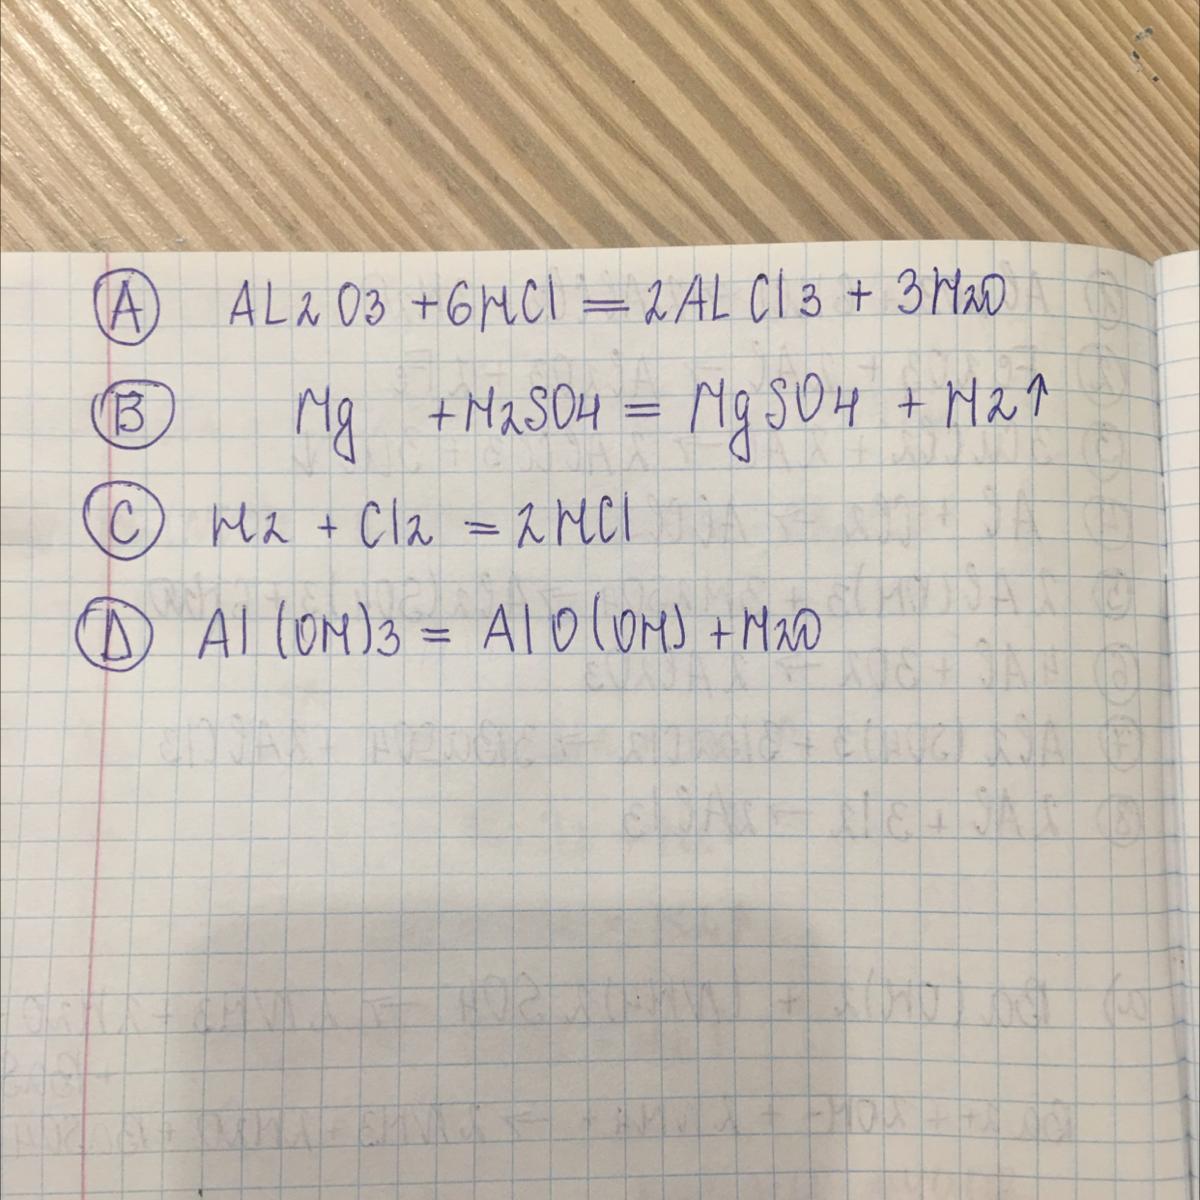 A AL2O3 + 6HCl = 2ALCl3 + 3H2O
B Mg + H2SO4 = MgSO4 + H2↑
C H2 + Cl2 = 2HCl
D Al(OH)3 = AlO(OH) + H2O